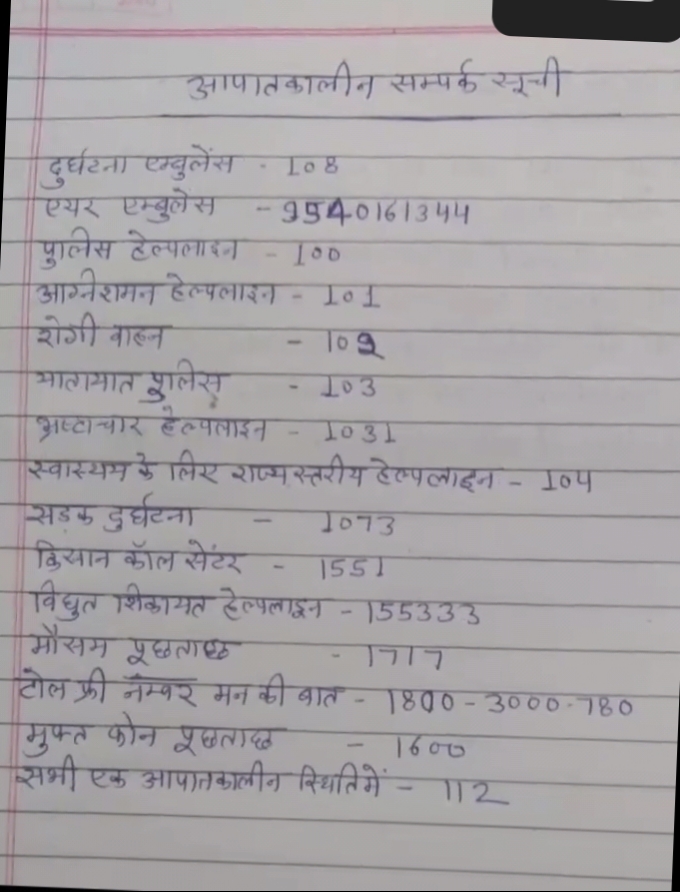 आपातकालीन सम्पर्क सूची
दुर्घटना एम्बुलेंस - 108
एयर एम्बुलेस - 9540161344
पुलिस हेल्पलाइन - 100
अग्निशमन हेल्पलाइन - 101
रोगी वाहन - 102
यातायात पुलिस - 103
भ्रष्टाचार हेल्पलाइन - 1031
स्वास्थ्य के लिए राज्य स्तरीय हेल्पलाइन - 104
सड़क दुर्घटना - 1073
किसान कॉल सेंटर - 1551
विधुत शिकायत हेल्पलाइन - 155333
मौसम पूछताछ - 1717
टोल फ्री नम्बर मन की बात - 1800 - 3000-780
मुफ्त फोन पूछताछ - 1600
सभी एक आपातकालीन स्थितिमें - 112